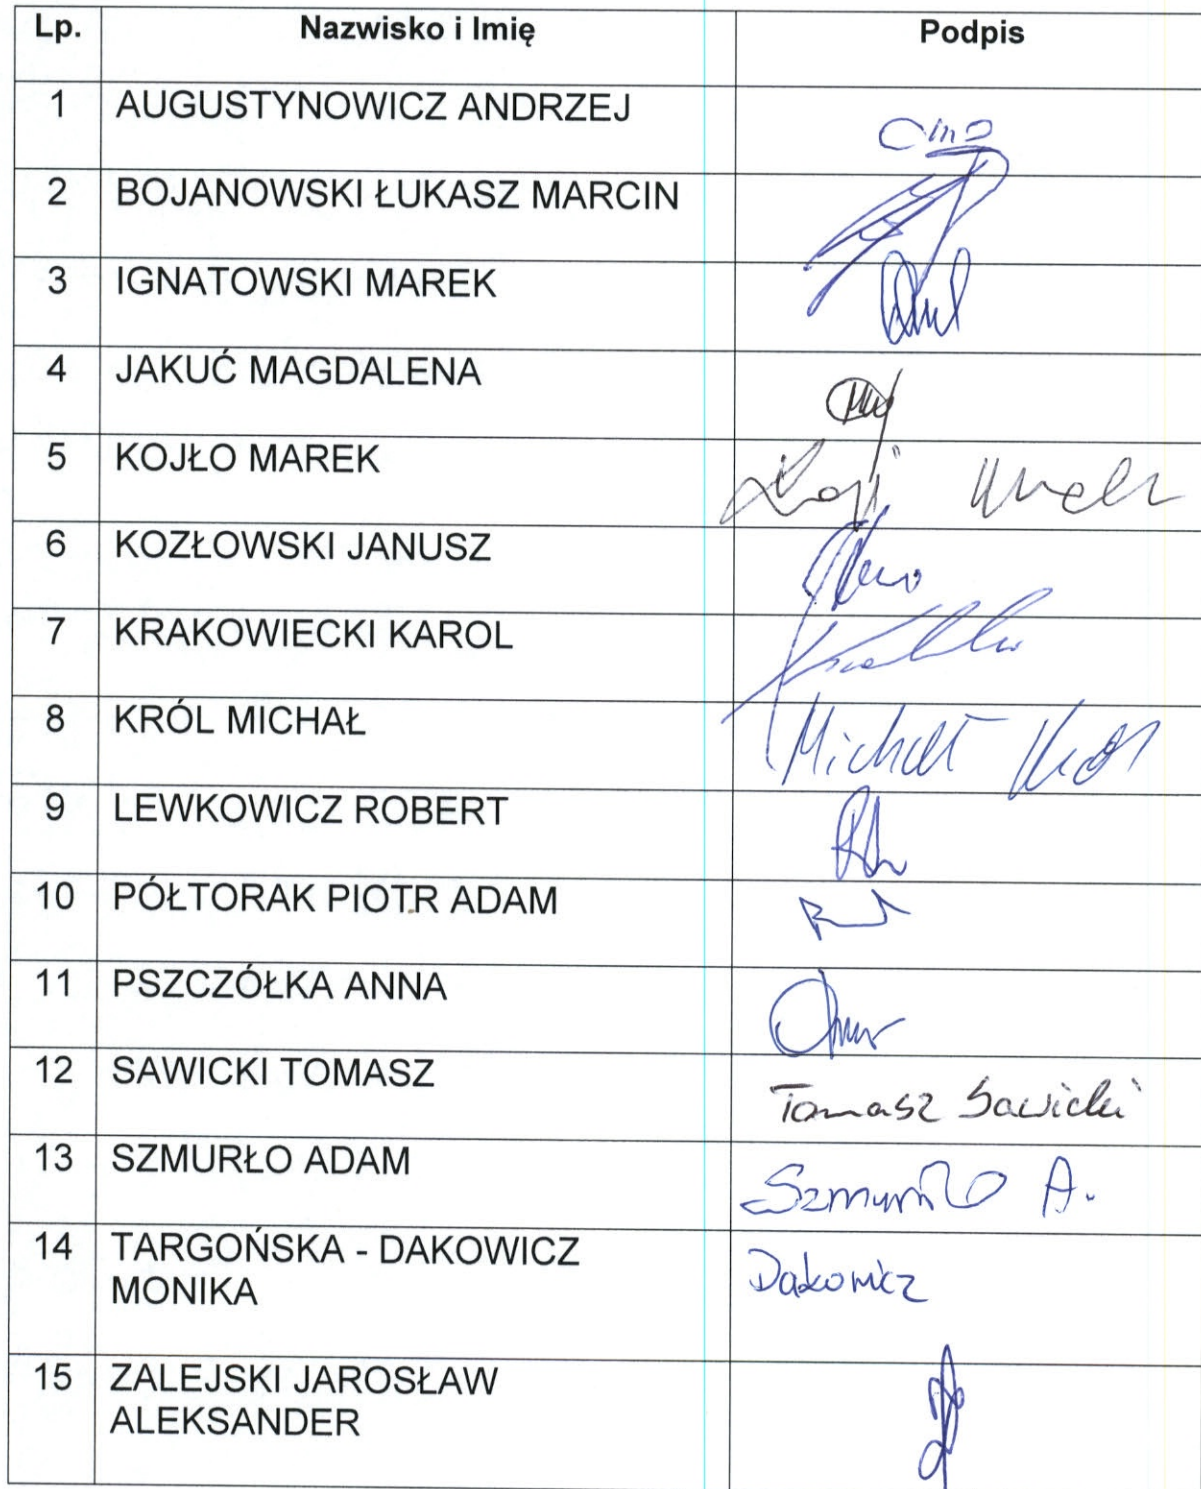 Lp. Nazwisko i Imię Podpis
1 AUGUSTYNOWICZ ANDRZEJ
2 BOJANOWSKI ŁUKASZ MARCIN
3 IGNATOWSKI MAREK
4 JAKUĆ MAGDALENA
5 KOJŁO MAREK
6 KOZŁOWSKI JANUSZ
7 KRAKOWIECKI KAROL
8 KRÓL MICHAŁ Michał Król
9 LEWKOWICZ ROBERT
10 PÓŁTORAK PIOTR ADAM
11 PSZCZÓŁKA ANNA
12 SAWICKI TOMASZ Tomasz Sawicki
13 SZMURŁO ADAM Szmurło A.
14 TARGOŃSKA - DAKOWICZ Dakowicz
MONIKA
15 ZALEJSKI JAROSŁAW
ALEKSANDER